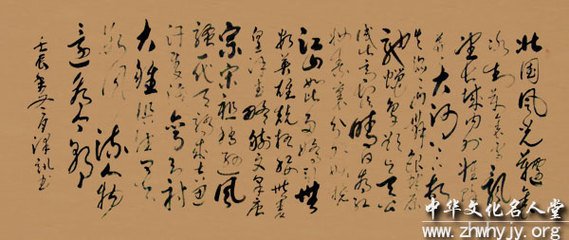 北国风光千里
冰封万里雪飘
望长城内外惟馀
莽莽大河上下顿
失滔滔山舞银蛇原
驰蜡象欲与天公
试比高须晴日看红
妆素裹分外妖娆
江山如此多娇引无
数英雄竞折腰惜秦
皇汉武略输文采唐
宗宋祖稍逊风
骚一代天骄成吉思
汗只识弯弓射
大雕俱往矣
数风流人物
还看今朝
壬辰年冬
中华文化名人堂
www.zhwhyjy.org